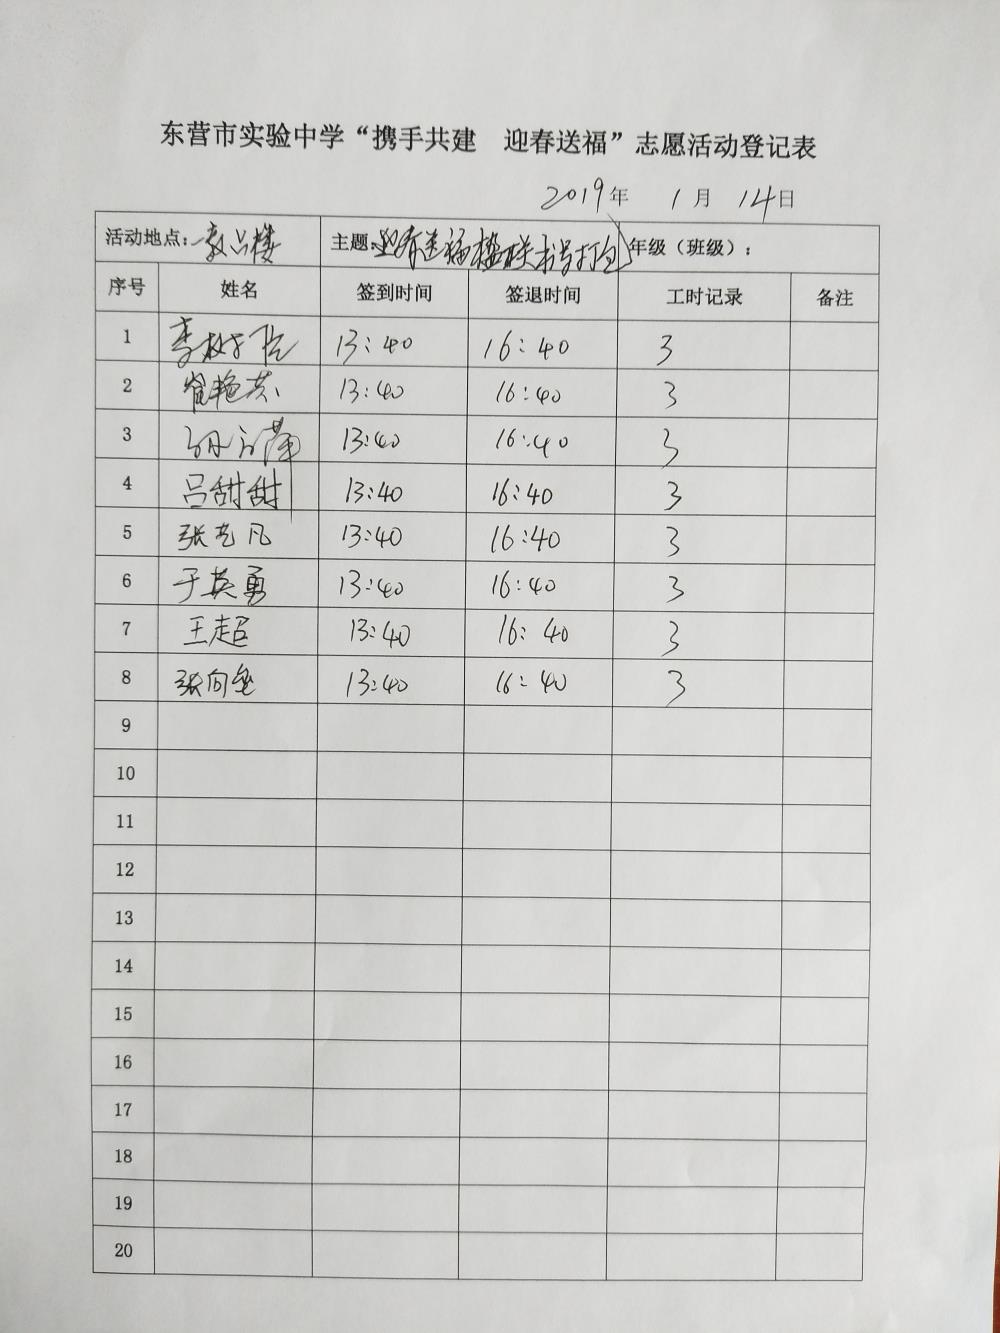 东营市实验中学“携手共建 迎春送福”志愿活动登记表
2019年 1月 14日
活动地点: 楼 主题: 迎春送福 打包 年级（班级）:
序号 姓名 签到时间 签退时间 工时记录 备注
1 李 13:40 16:40 3
2 崔艳 13:40 16:40 3
3 13:40 16:40 3
4 吕甜甜 13:40 16:40 3
5 张 凡 13:40 16:40 3
6 于英勇 13:40 16:40 3
7 王超 13:40 16:40 3
8 张向 13:40 16:40 3
9
10
11
12
13
14
15
16
17
18
19
20